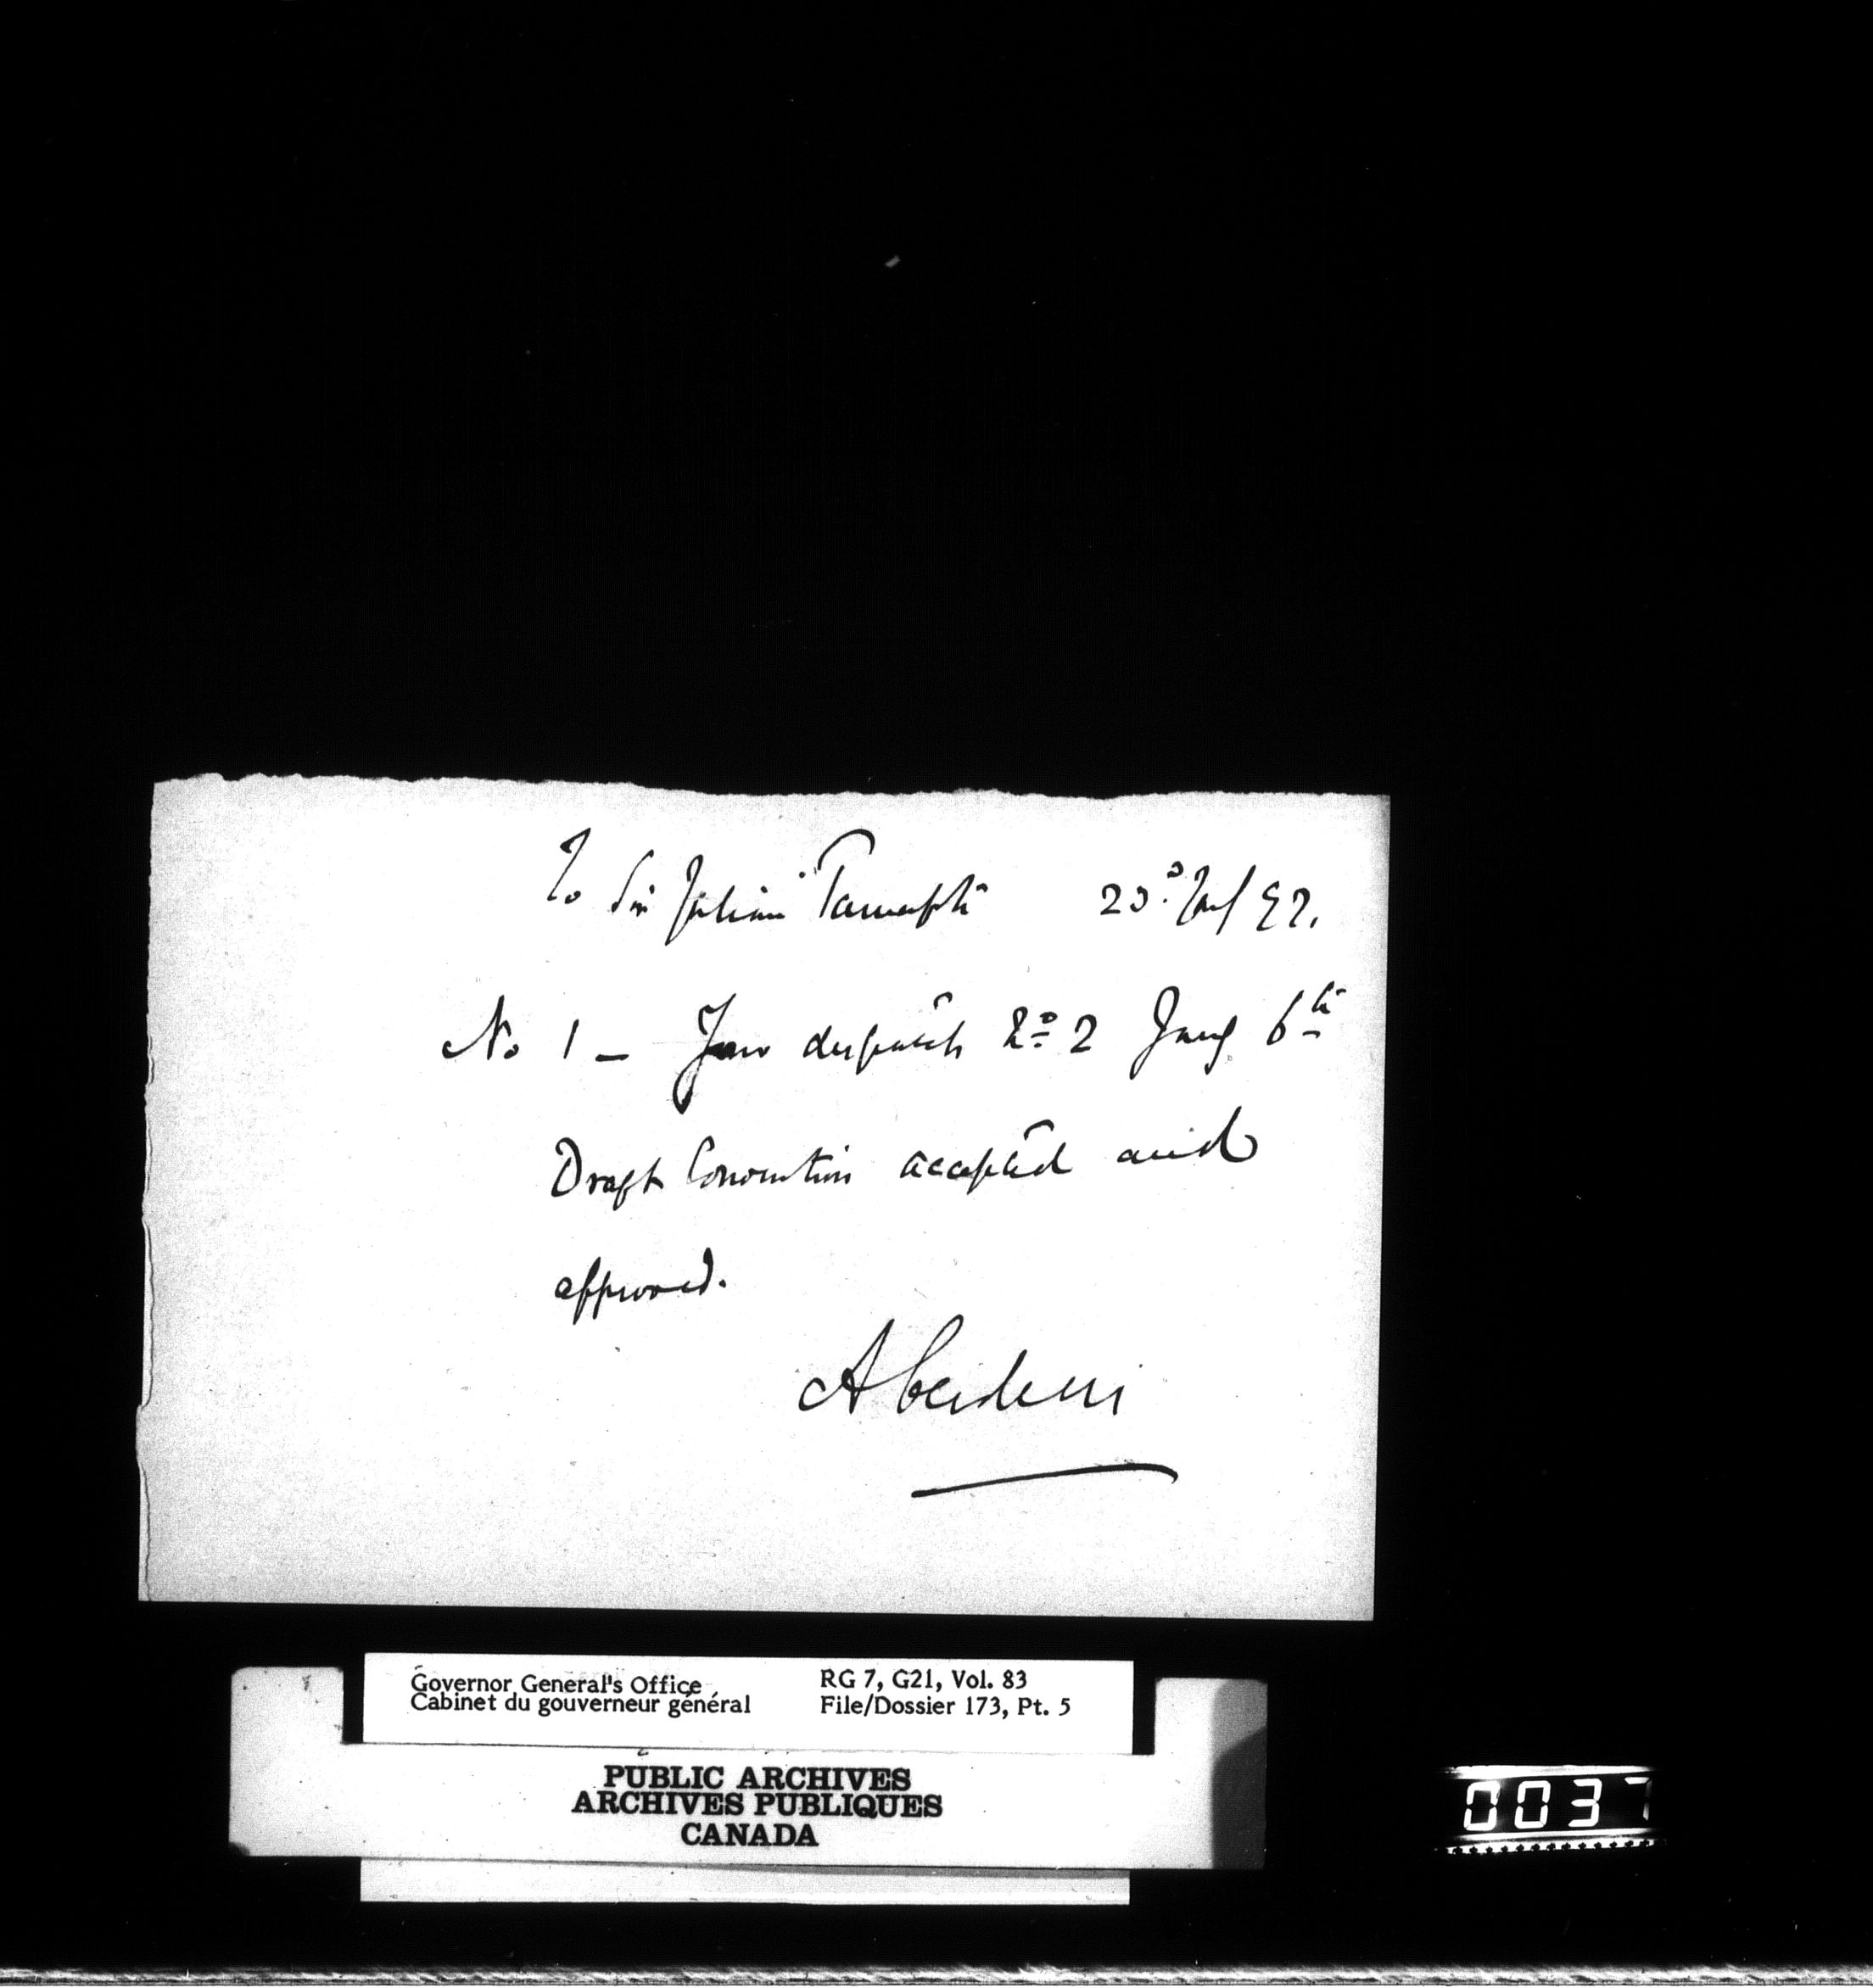 To Sir Julian Pauncefote 23º Jany 97.
No 1 - Your despatch Nº 2 Jany 6th
Draft Convention accepted and
approved.
Aberdeen
Governor General's Office RG 7, G21, Vol. 83
Cabinet du gouverneur général File/Dossier 173, Pt. 5
PUBLIC ARCHIVES
ARCHIVES PUBLIQUES
CANADA
0037